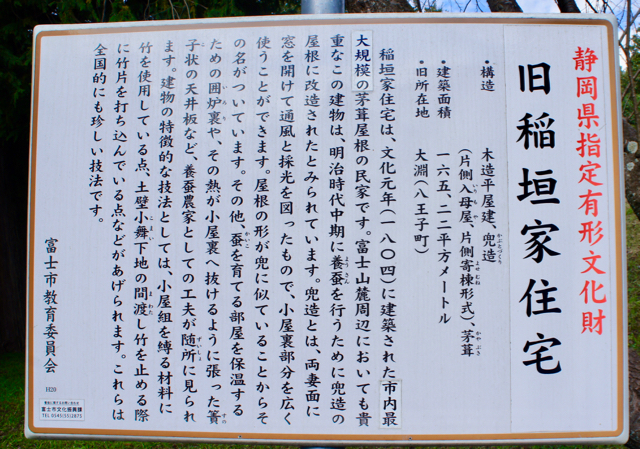 静岡県指定有形文化財
旧稲垣家住宅
•構造　木造平屋建、兜造（かぶとづくり）
（片側入母屋、片側寄棟（よせむね）形式）、茅葺（かやぶき）
•建築面積　一六五．二二平方メートル
•旧所在地　大淵（八王子町）
稲垣家住宅は、文化元年（一八〇四）に建築された市内最
大規模の茅葺屋根の民家です。富士山麓周辺においても貴
重なこの建物は、明治時代中期に養蚕（ようさん）を行うために兜造の
屋根に改造されたとみられています。兜造とは、両妻面に
窓を開けて通風と採光を図ったもので、小屋裏部分を広く
使うことができます。屋根の形が兜に似ていることからそ
の名がついています。その他、蚕（かいこ）を育てる部屋を保温する
ための囲炉裏（いろり）や、その熱が小屋裏へ抜けるように張った簀（すの）
子（こ）状の天井板など、養蚕農家としての工夫が随所（ずいしょ）に見られ
ます。建物の特徴的な技法としては、小屋組を縛る材料に
竹を使用している点、土壁小舞（こまい）下地の間渡（まわた）し竹を止める際
に竹片を打ち込んでいる点などがあげられます。これらは
全国的にも珍しい技法です。
富士市教育委員会
H20
富士市文化振興課
TEL 0545(55)2875